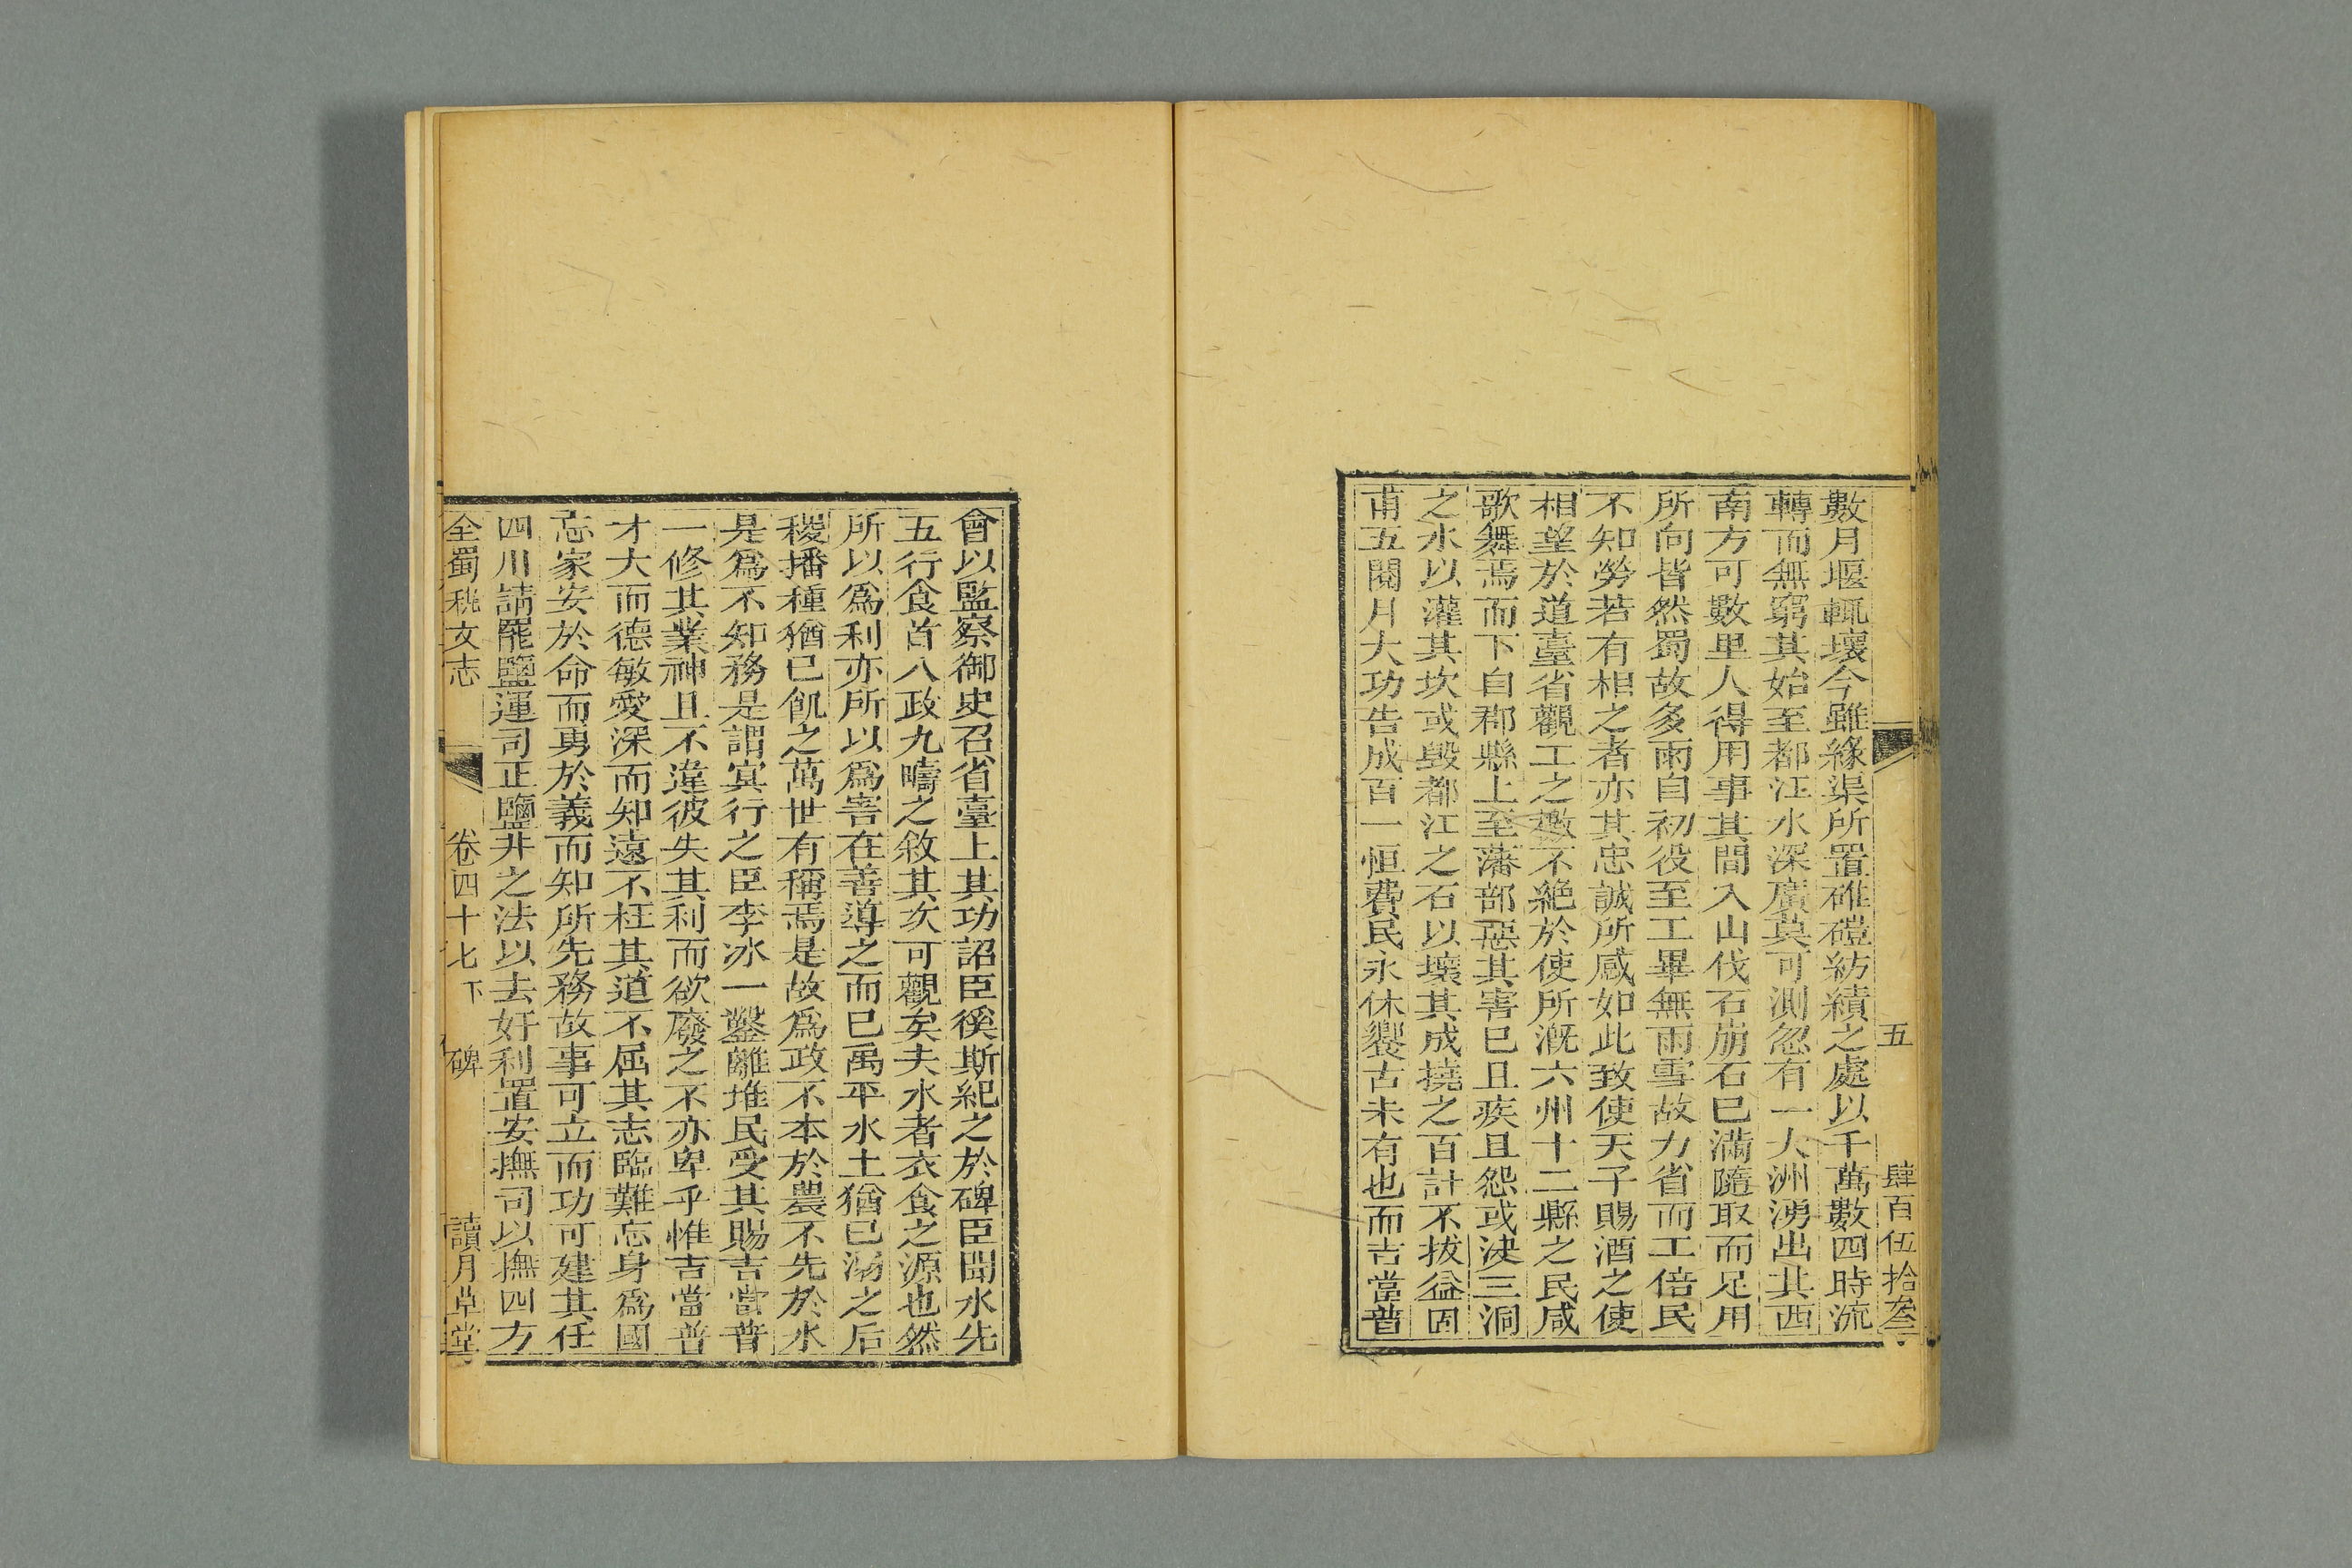 五 肆百伍拾叁
數月堰輒壞今雖緣渠所置碓磑紡績之處以千萬數四時流
轉而無窮其始至都江水深廣莫可測忽有一大洲湧出其西
南方可數里人得用事其間入山伐石崩石已滿隨取而足用
所向皆然蜀故多雨自初役至工畢無雨雪故力省而工倍民
不知勞若有相之者亦其忠誠所感如此致使天子賜酒之使
相望於道臺省觀工之檄不絕於使所溉六州十二縣之民咸
歌舞焉而下自郡縣上至藩部惡其害已且疾且怨或決三洞
之水以灌其坎或毀都江之石以壞其成撓之百計不拔益固
甫五閱月大功告成百一恒費民永休饗古未有也而吉當普
會以監察御史召省臺上其功詔臣徯斯紀之於碑臣聞水先
五行食首八政九疇之敘其次可觀矣夫水者衣食之源也然
所以爲利亦所以爲害在善導之而已禹平水土猶已溺之后
稷播種猶已飢之萬世有稱焉是故爲政不本於農不先於水
是爲不知務是謂冥行之臣李冰一鑿離堆民受其賜吉當普
一修其業神且不違彼失其利而欲廢之不亦卑乎惟吉當普
才大而德敏愛深而知遠不枉其道不屈其志臨難忘身爲國
忘家安於命而勇於義而知所先務故事可立而功可建其任
四川請罷鹽運司正鹽井之法以去奸利置安撫司以撫四方
全蜀秇文志 卷四十七下 碑 讀月草堂